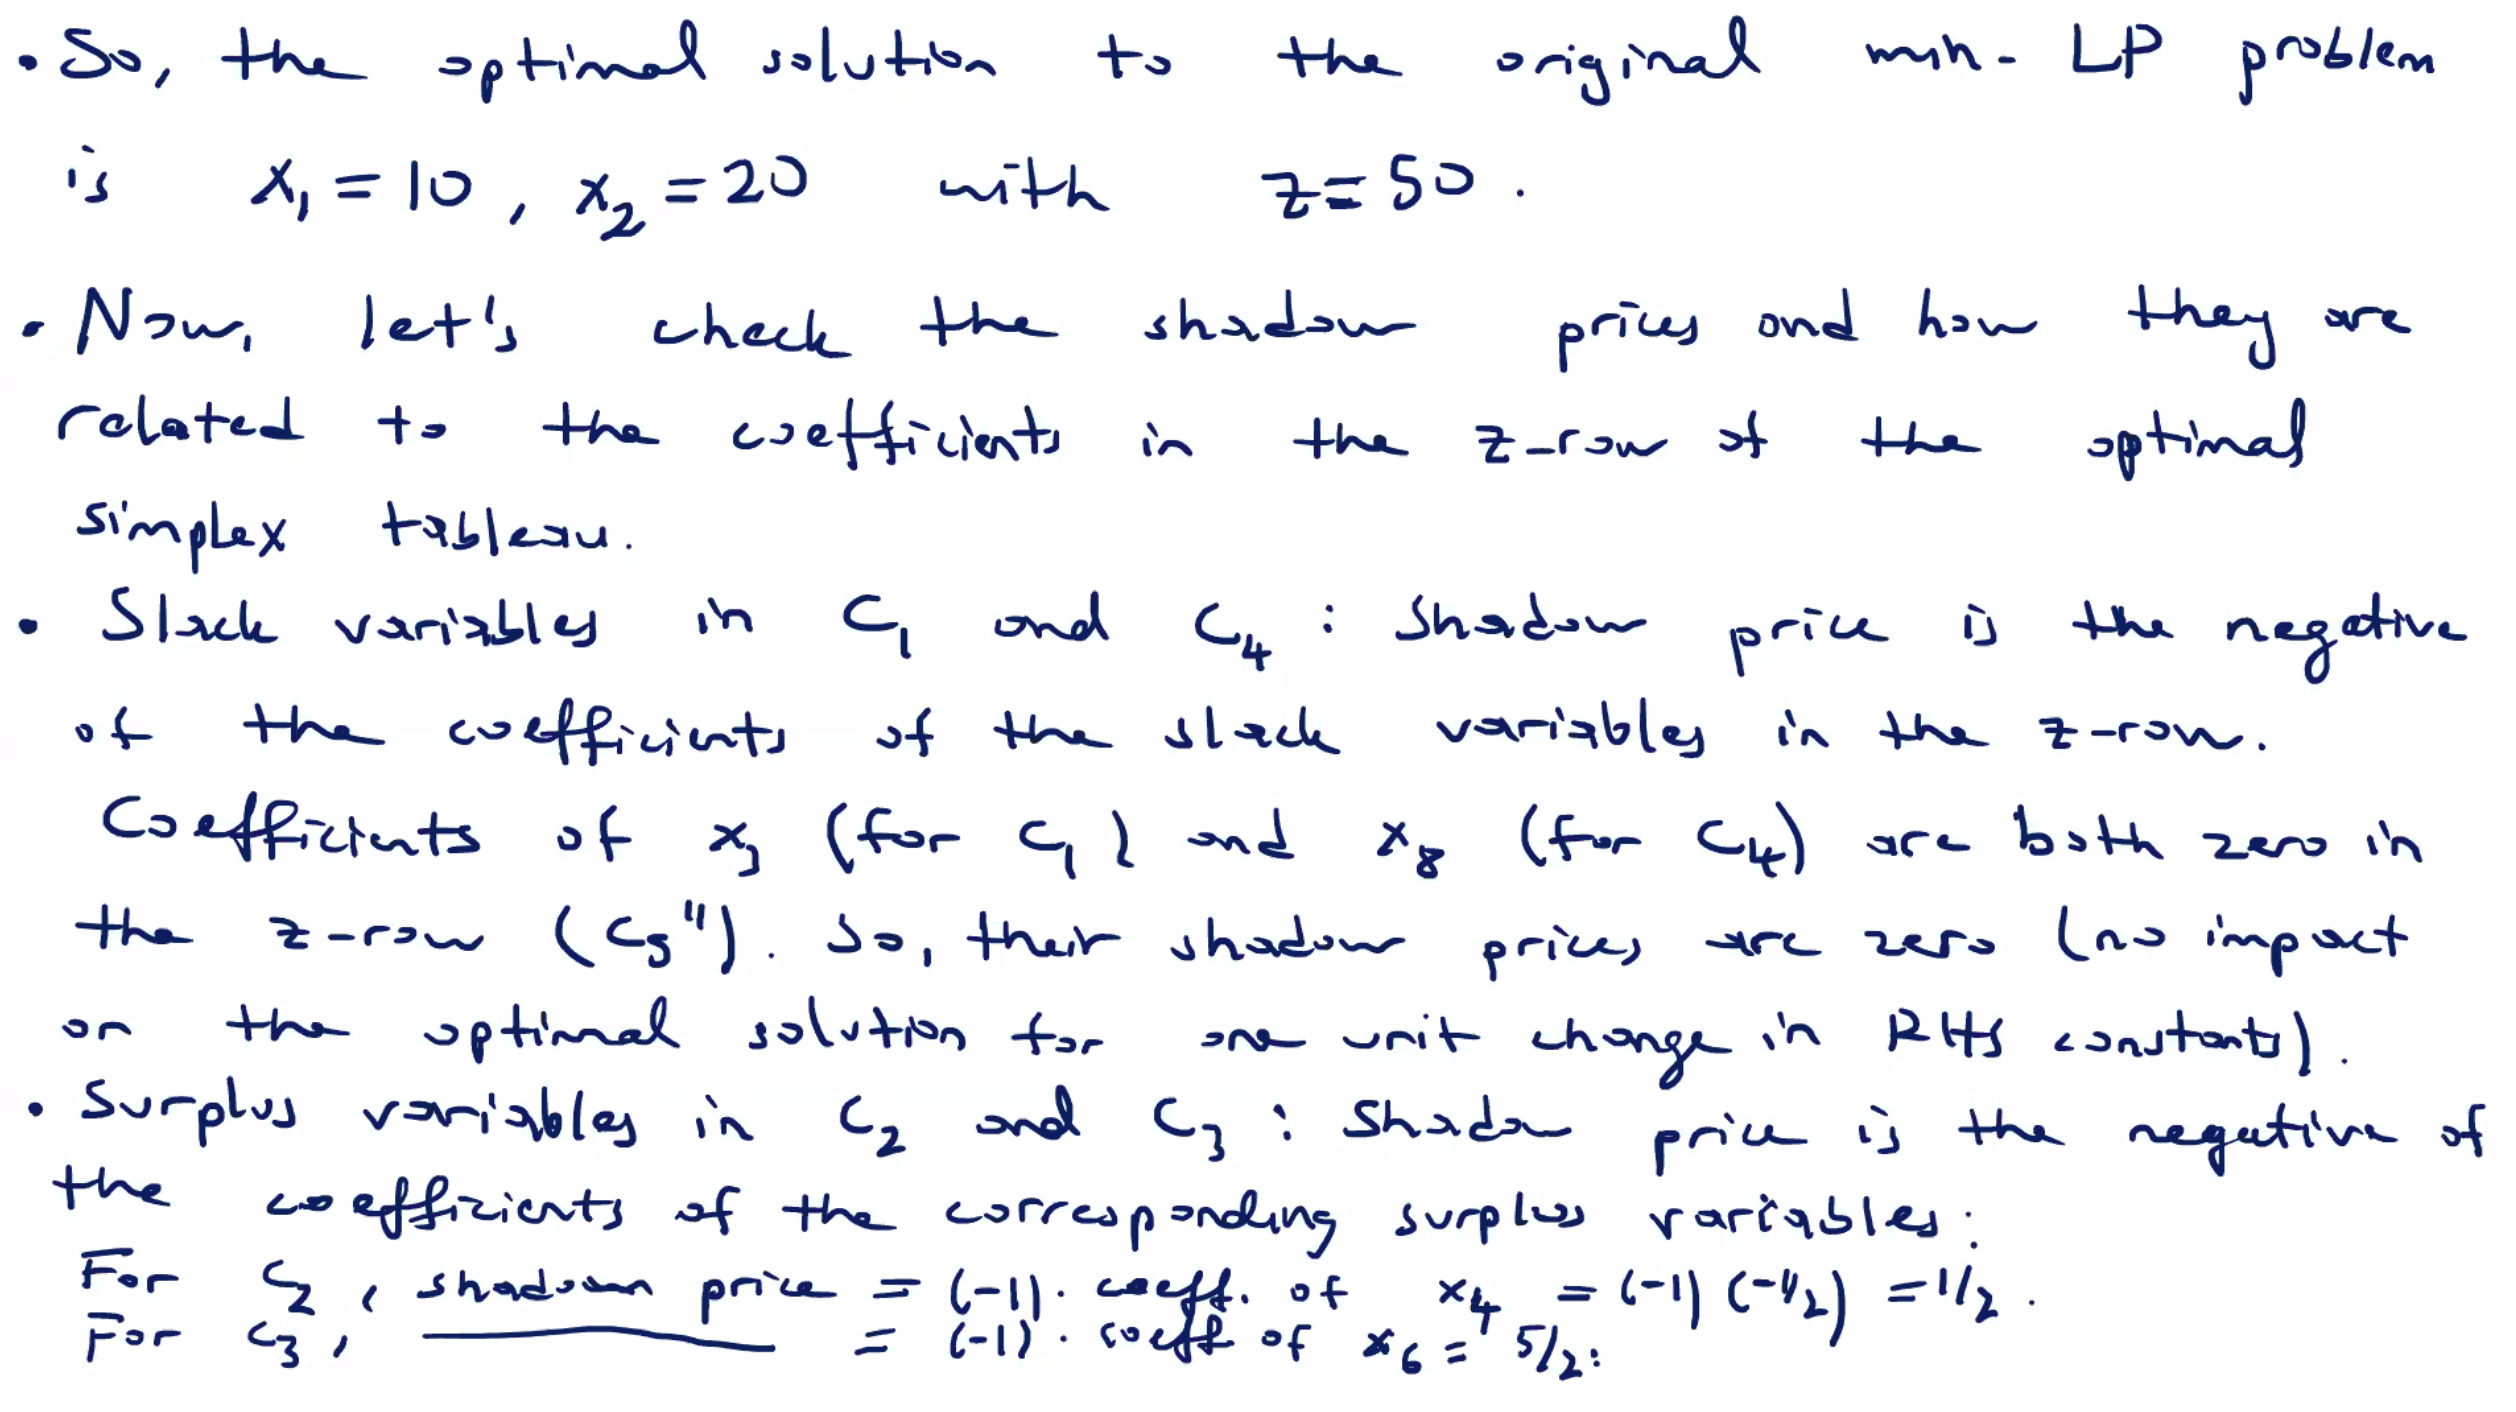 • So, the optimal solution to the original min- LP problem
is x₁ = 10, x₂ = 20 with z = 50.
• Now, let's check the shadow prices and how they are
related to the coefficients in the z-row of the optimal
simplex tableau.
• Slack variables in C₁ and C₄ : Shadow price is the negative
of the coefficients of the slack variables in the z-row.
Coefficients of x₃ (for C₁) and x₈ (for C₄) are both zero in
the z-row (C5"). So, their shadow prices are zero (no impact
on the optimal solution for one unit change in RHS constants).
• Surplus variables in C₂ and C₃ : Shadow price is the negative of
the coefficients of the corresponding surplus variables:
For C₂, shadown price = (-1). coeff. of x₄ = (-1) (-1/2) = 1/2.
For C₃, ________ = (-1). coeff of x₆ = 5/2.